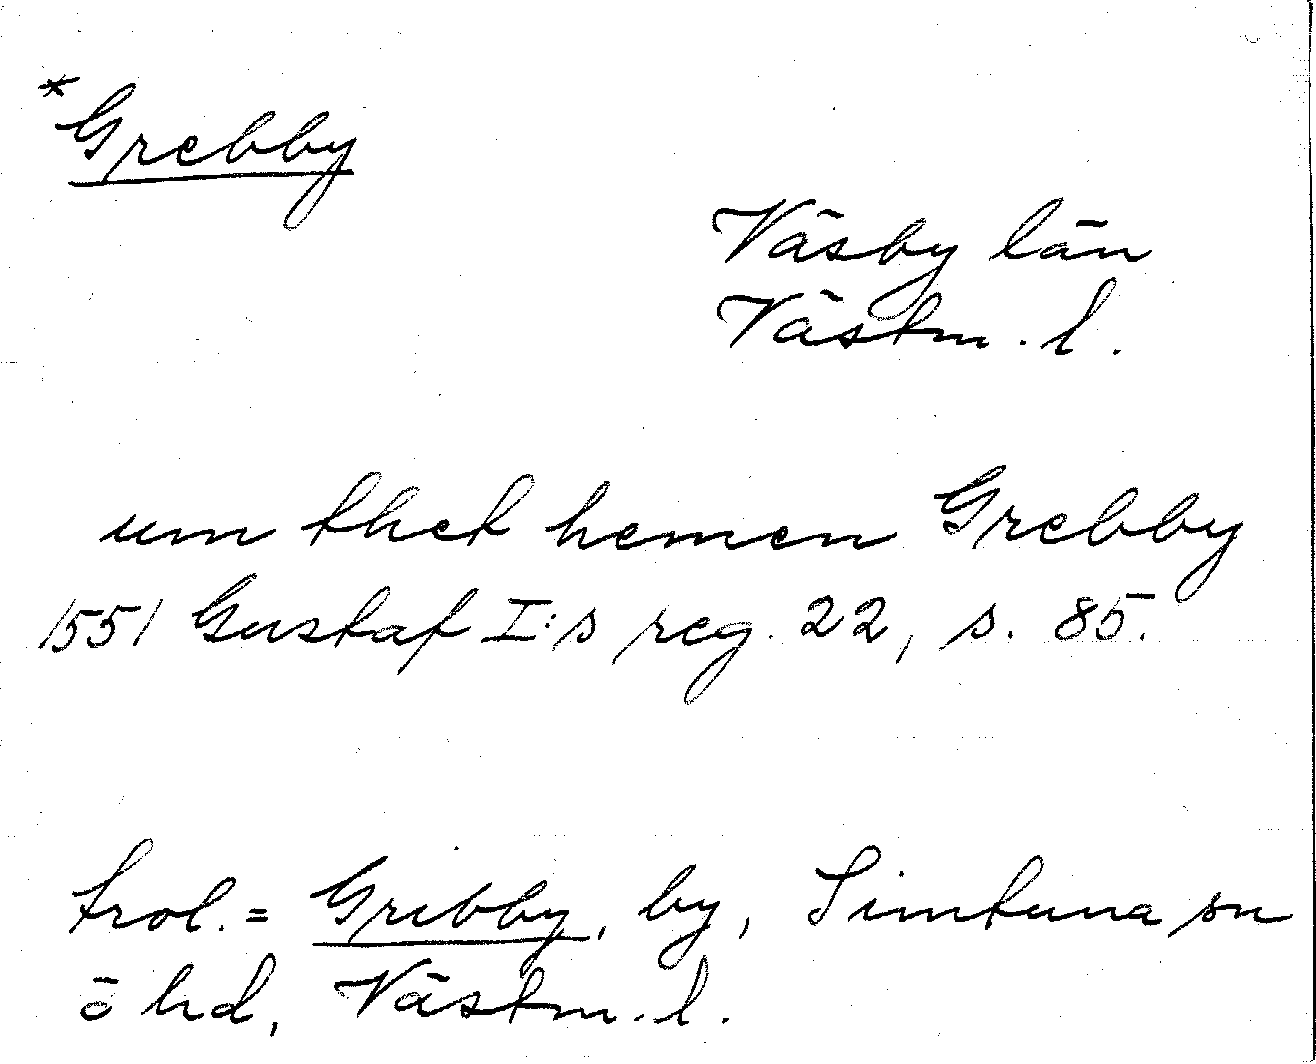 *Grebby
Väsby län
Västm. l.
um thet hemen Grebby
1551 Gustaf I:s reg. 22, s. 85.
trol. = Gribby, by, Simtuna sn
ö hd, Västm. l.